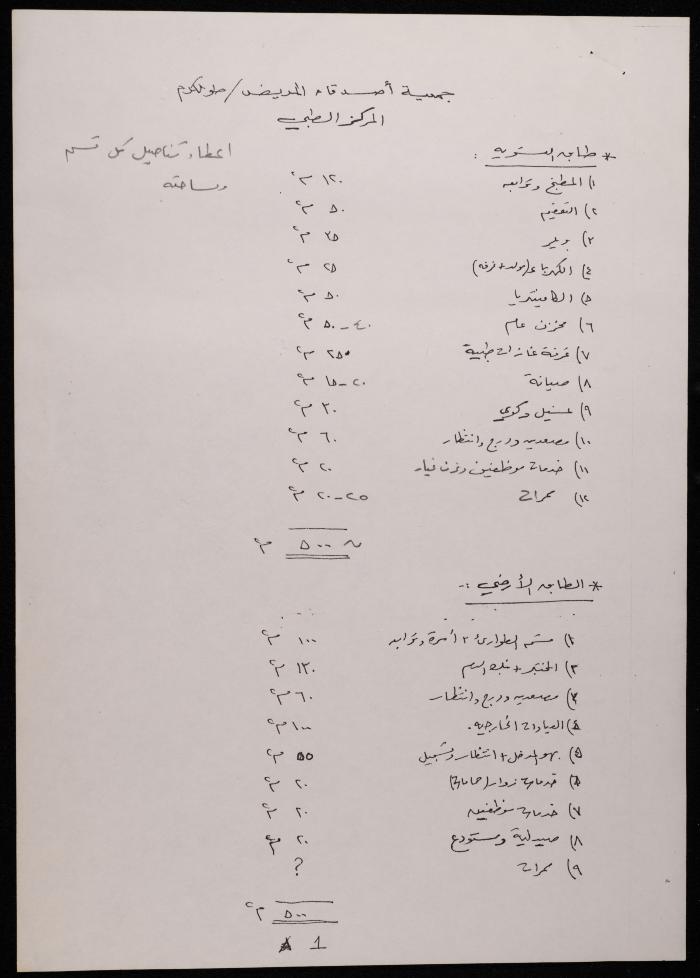 جمعية أصدقاء المريض / طولكرم
المركز الطبي
اعطاء تفاصيل كل قسم
ومساحته
* طابق التسوية :
١) المطبخ وتوابعه ١٢٠ م٢
٢) التعقيم ٥٠ م٢
٣) بويلر ٣٥ م٢
٤) الكهرباء (مولد + غرفة) ٢٥ م٢
٥) الكافيتريا ٥٠ م٢
٦) مخزن عام ٤٠-٥٠ م٢
٧) غرفة غازات طبية ٢٥ م٢
٨) صيانة ١٥-٢٠ م٢
٩) غسيل وكوي ٣٠ م٢
١٠) مصعدين ودرج وانتظار ٦٠ م٢
١١) خدمات موظفين وغرف غيار ٢٠ م٢
١٢) ممرات ٢٠-٢٥ م٢
~ ٥٠٠ م٢
* الطابق الأرضي :-
١) قسم الطوارئ ٢ أسرة وتوابعه ١٠٠ م٢
٢) المختبر + بنك الدم ١٣٠ م٢
٣) مصعدين ودرج وانتظار ٦٠ م٢
٤) العيادات الخارجية. ١٠٠ م٢
٥) بهو المدخل + انتظار وتسجيل ٥٥ م٢
٦) خدمات زوار (حمامات) ٢٠ م٢
٧) خدمات موظفين ٢٠ م٢
٨) صيدلية ومستودع ٢٠ م٢
٩) ممرات ?
٥٠٠ م٢
1